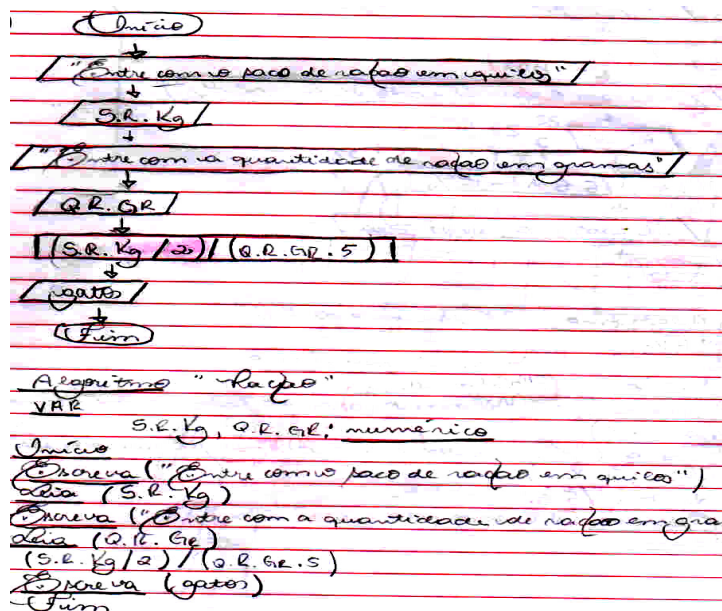 Início
"Entre com o saco de ração em quilos"
S.R.Kg
"Entre com a quantidade de ração em gramas"
Q.R.GR
(S.R.Kg / 2) / (Q.R.GR.5)
gatos
Fim
Algoritmo "Ração"
VAR
S.R.Kg, Q.R.GR: numérico
Início
Escreva ("Entre com o saco de ração em quilos")
Leia (S.R.Kg)
Escreva ("Entre com a quantidade de ração em gra
Leia (Q.R.GR)
(S.R.Kg/2) / (Q.R.GR.5)
Escreva (gatos)
Fim